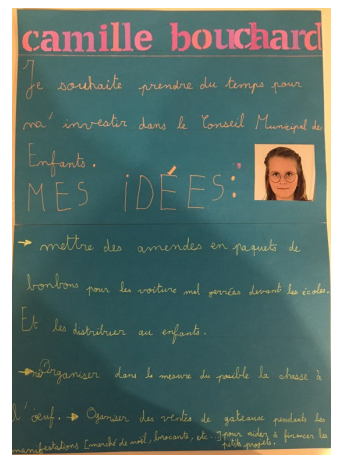 camille bouchard
Je souhaite prendre du temps pour
m'investir dans le Conseil Municipal de
Enfants.
MES iDÉES:
→ mettre des amendes en paquets de
bonbons pour les voiture mal garées devant les écoles.
Et les distribuer au enfants.
→ Organiser dans la mesure du posible la chasse à
l'œuf. → Oganiser des ventes de gateause pendents les
manifestations [marché de noël, brocante, etc...] pour aider à financer les
petits projets.